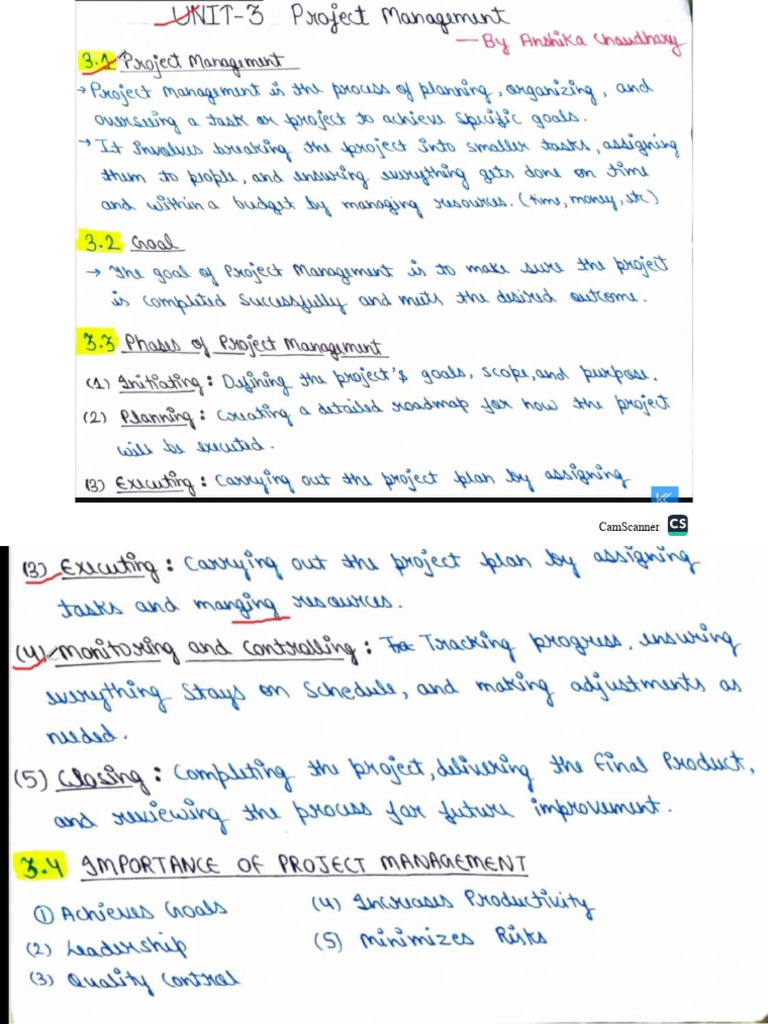 UNIT-3 Project Management
— By Anshika Chaudhary
3.1 Project Management
→ Project management is the process of planning, organizing, and
overseeing a task or project to achieve specific goals.
→ It involves breaking the project into smaller tasks, assigning
them to people, and ensuring everything gets done on time
and within a budget by managing resources. (time, money, etc)
3.2 Goal
→ The goal of Project Management is to make sure the project
is completed successfully and meets the desired outcome.
3.3 Phases of Project Management
(1) Initiating : Defining the project's goals, scope, and purpose.
(2) Planning : Creating a detailed roadmap for how the project
will be executed.
(3) Executing : Carrying out the project plan by assigning
CamScanner CS
(3) Executing : Carrying out the project plan by assigning
tasks and manging resources.
(4) Monitoring and Controlling : Tracking progress, ensuring
everything stays on schedule, and making adjustments as
needed.
(5) Closing : Completing the project, delivering the final Product,
and reviewing the process for future improvement.
3.4 IMPORTANCE OF PROJECT MANAGEMENT
① Achieves Goals (4) Increases Productivity
(2) Leadership (5) Minimizes Risks
(3) Quality Control